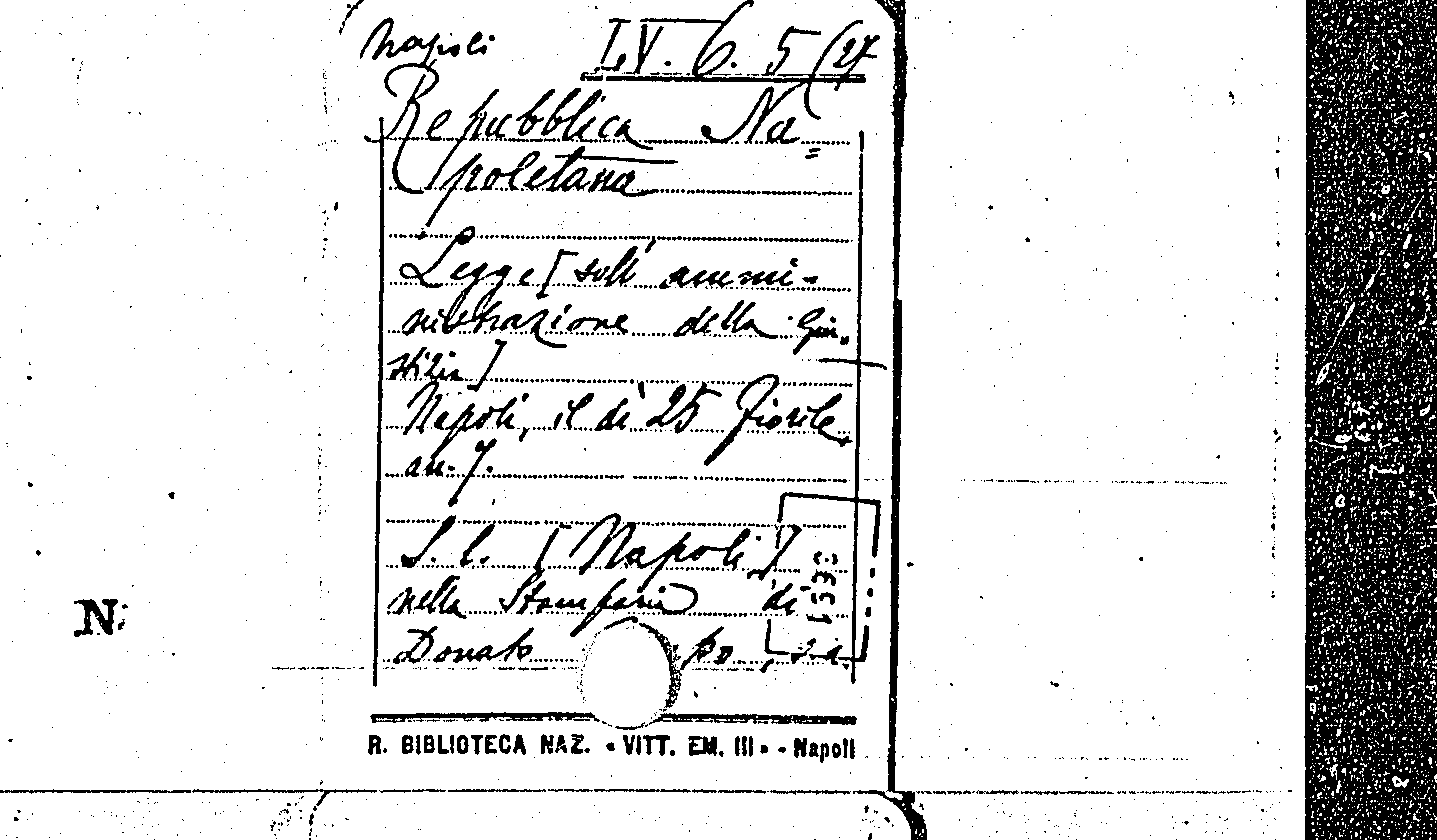 Napoli L.V. 6. 5 (27
Repubblica Na=
poletana
Legge [sull' ammi-
nistrazione della Giu.
stizia]
Napoli, il dì 25 Fiorile
an. 7.
S. l. [Napoli]
nella Stamperia di
Donato po, s.a.
R. BIBLIOTECA NAZ. « VITT. EM. III » - Napoli
N: